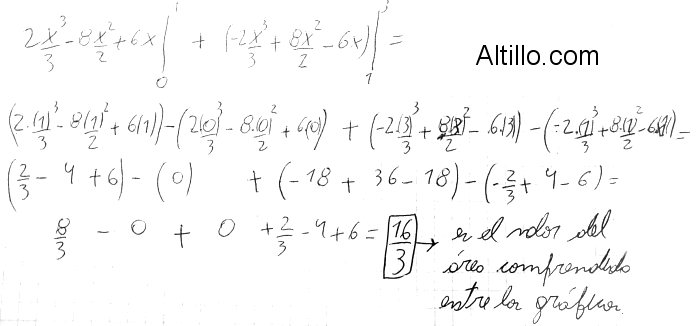 2x³/3 - 8x²/2 + 6x |₀¹ + (-2x³/3 + 8x²/2 - 6x)|₁³ =
Altillo.com
(2.(1)³/3 - 8(1)²/2 + 6(1)) - (2(0)³/3 - 8.(0)²/2 + 6(0)) + (-2.(3)³/3 + 8(3)²/2 - 6.(3)) - (-2.(1)³/3 + 8.(1)²/2 - 6(1)) =
(2/3 - 4 + 6) - (0) + (-18 + 36 - 18) - (-2/3 + 4 - 6) =
8/3 - 0 + 0 + 2/3 - 4 + 6 = 16/3 → es el valor del
área comprendida
entre las gráficas.